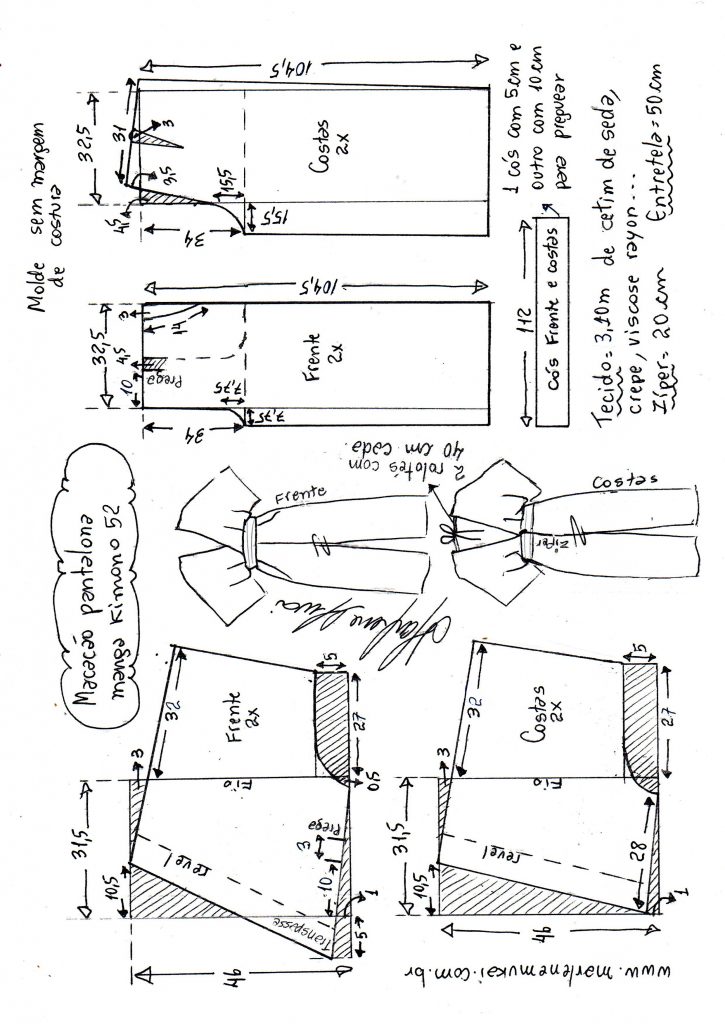 Macacão pantalona
manga Kimono 52
31,5
10,5
3
32
Frente
2x
Fio
revel
Transpasse
46
5
1
10
3
Prega
0,5
27
5
31,5
10,5
3
32
Costas
2x
Fio
revel
46
28
1
27
5
www.marlenemukai.com.br
Frente
Costas
Zíper
2 rolotês com
40 cm cada.
Marlene Mukai
Molde sem margem
de costura
32,5
10
4,5
3
14
Prega
34
7,75
7,75
Frente
2x
104,5
32,5
31
3
4,5
3,5
34
15,5
15,5
Costas
2x
104,5
112
Cós Frente e costas
1 cós com 5cm e
outro com 10cm
para preguear
Tecido = 3,10m de cetim de seda,
crepe, viscose rayon...
Zíper = 20cm
Entretela = 50cm